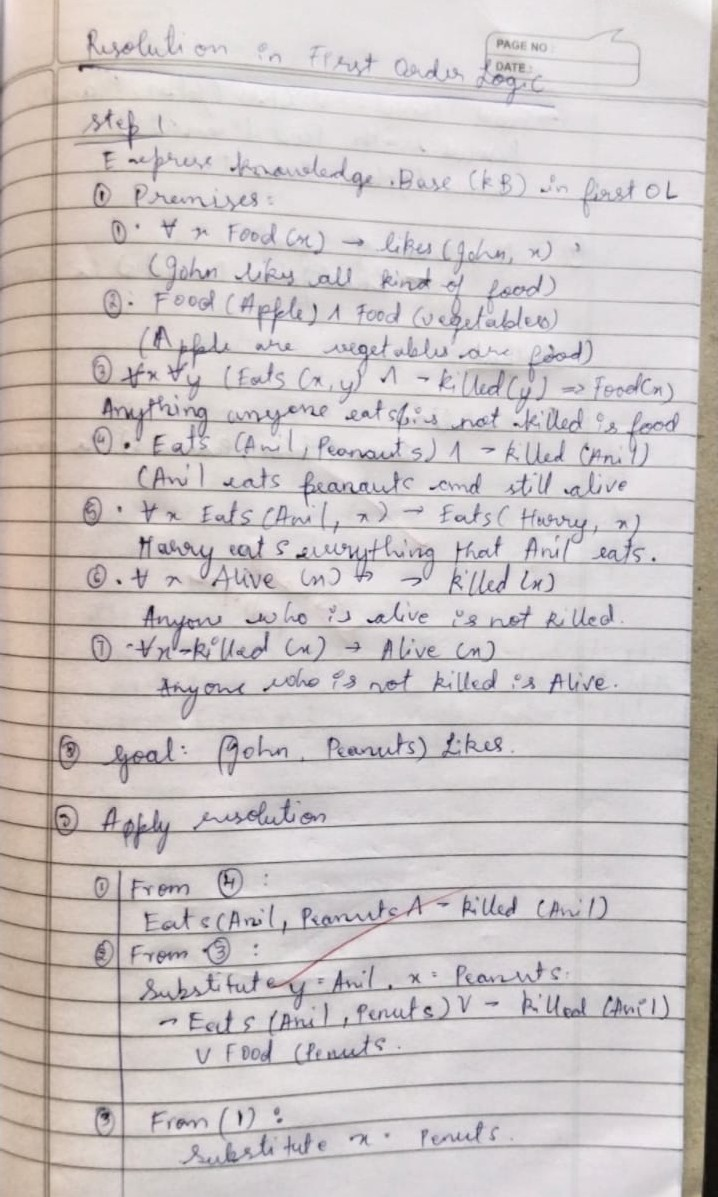 PAGE NO :
DATE :
Resolution in First Order Logic
Step 1
Express knowledge Base (KB) in first OL
① Premises:
①. ∀ x Food (x) → likes (John, x)
(John likes all kind of food)
②. Food (Apple) ∧ Food (vegetables)
(Apple are vegetables are food)
③ ∀x ∀y (Eats (x, y) ∧ ¬ killed (y) ⇒ Food (x)
Anything anyone eats & is not killed is food
④. Eats (Anil, Peanauts) ∧ ¬ killed (Anil)
(Anil eats peanauts and still alive
⑤. ∀x Eats (Anil, x) → Eats (Harry, x)
Harry eats everything that Anil eats.
⑥. ∀ x Alive (x) → killed (x)
Anyone who is alive is not killed.
⑦ . ∀x ¬killed (x) → Alive (x)
Anyone who is not killed is Alive.
⑧ goal: (John, Peanuts) Likes.
② Apply resolution
① From ④ :
Eats (Anil, Peanuts ∧ ¬ killed (Anil)
② From ③ :
Substitute y = Anil, x = Peanuts.
¬ Eats (Anil, Penuts) ∨ ¬ killed (Anil)
∨ Food (Penuts.
③ From (1) :
Substitute x . Penuts.